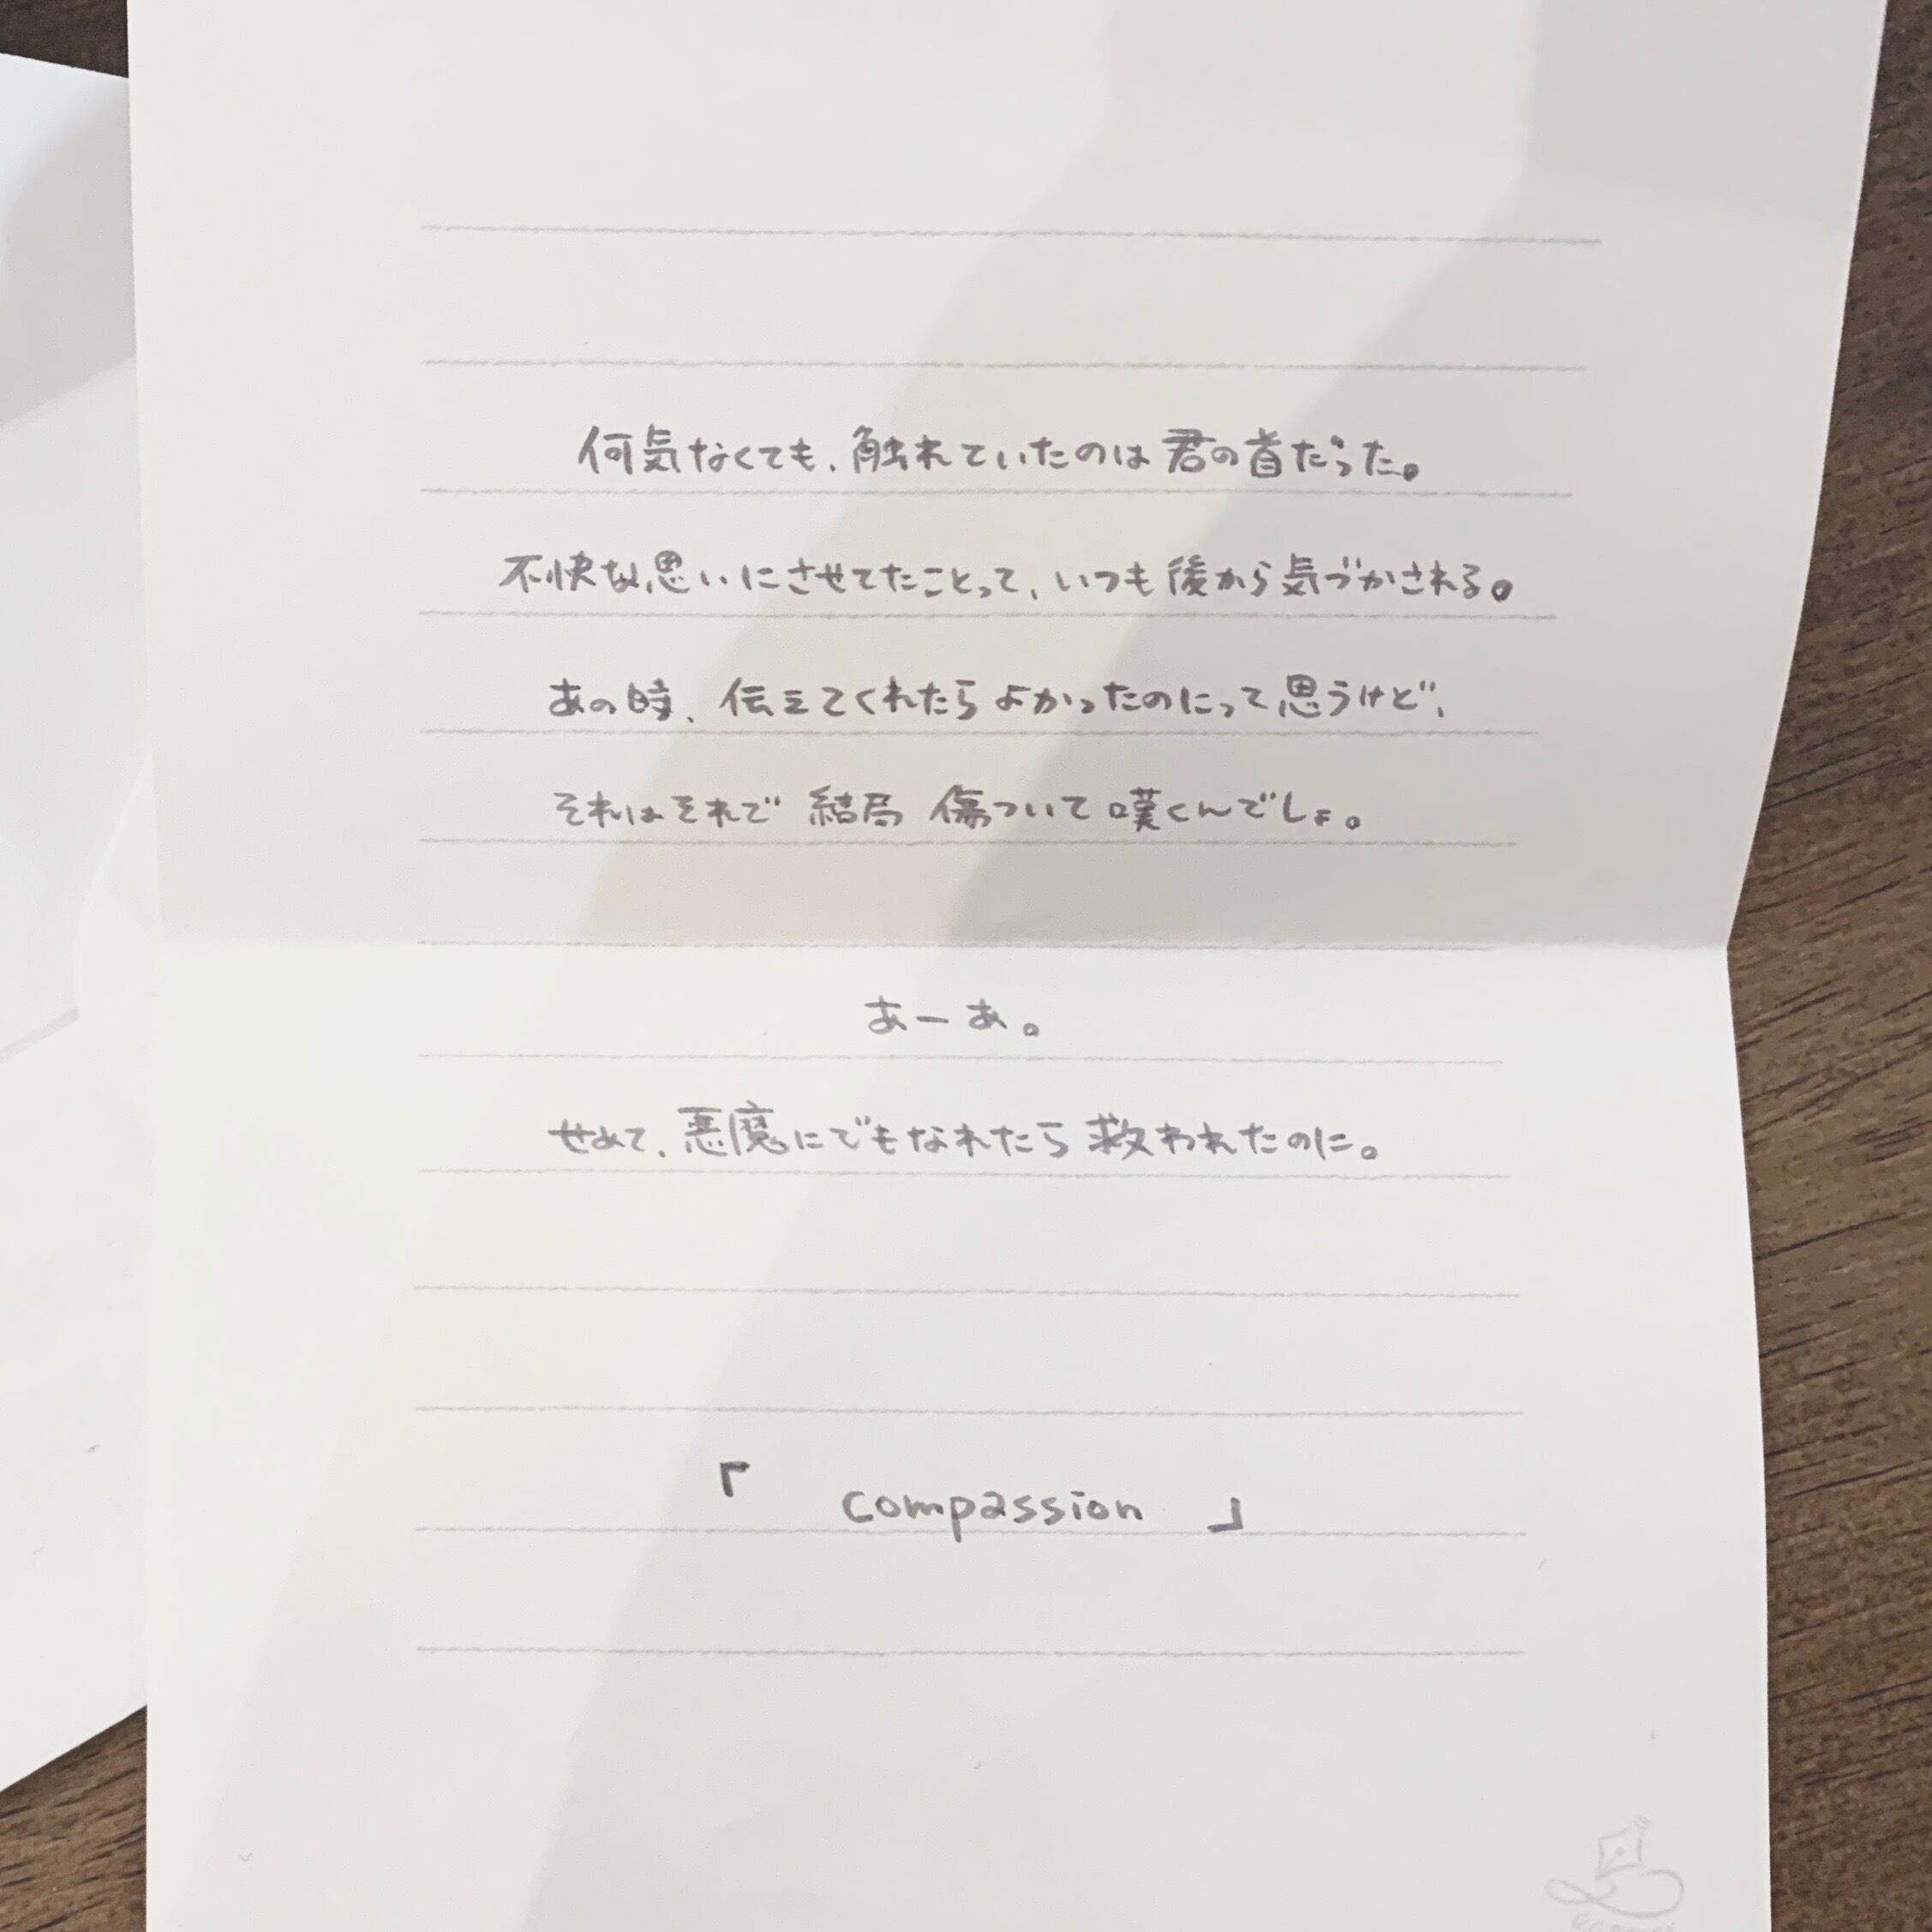 何気なくても、触れていたのは君の首だった。
不快な思いにさせてたことって、いつも後から気づかされる。
あの時、伝えてくれたらよかったのにって思うけど、
それはそれで 結局 傷ついて 嘆くんでしょ。
あーあ。
せめて、悪魔にでもなれたら 救われたのに。
『 compassion 』